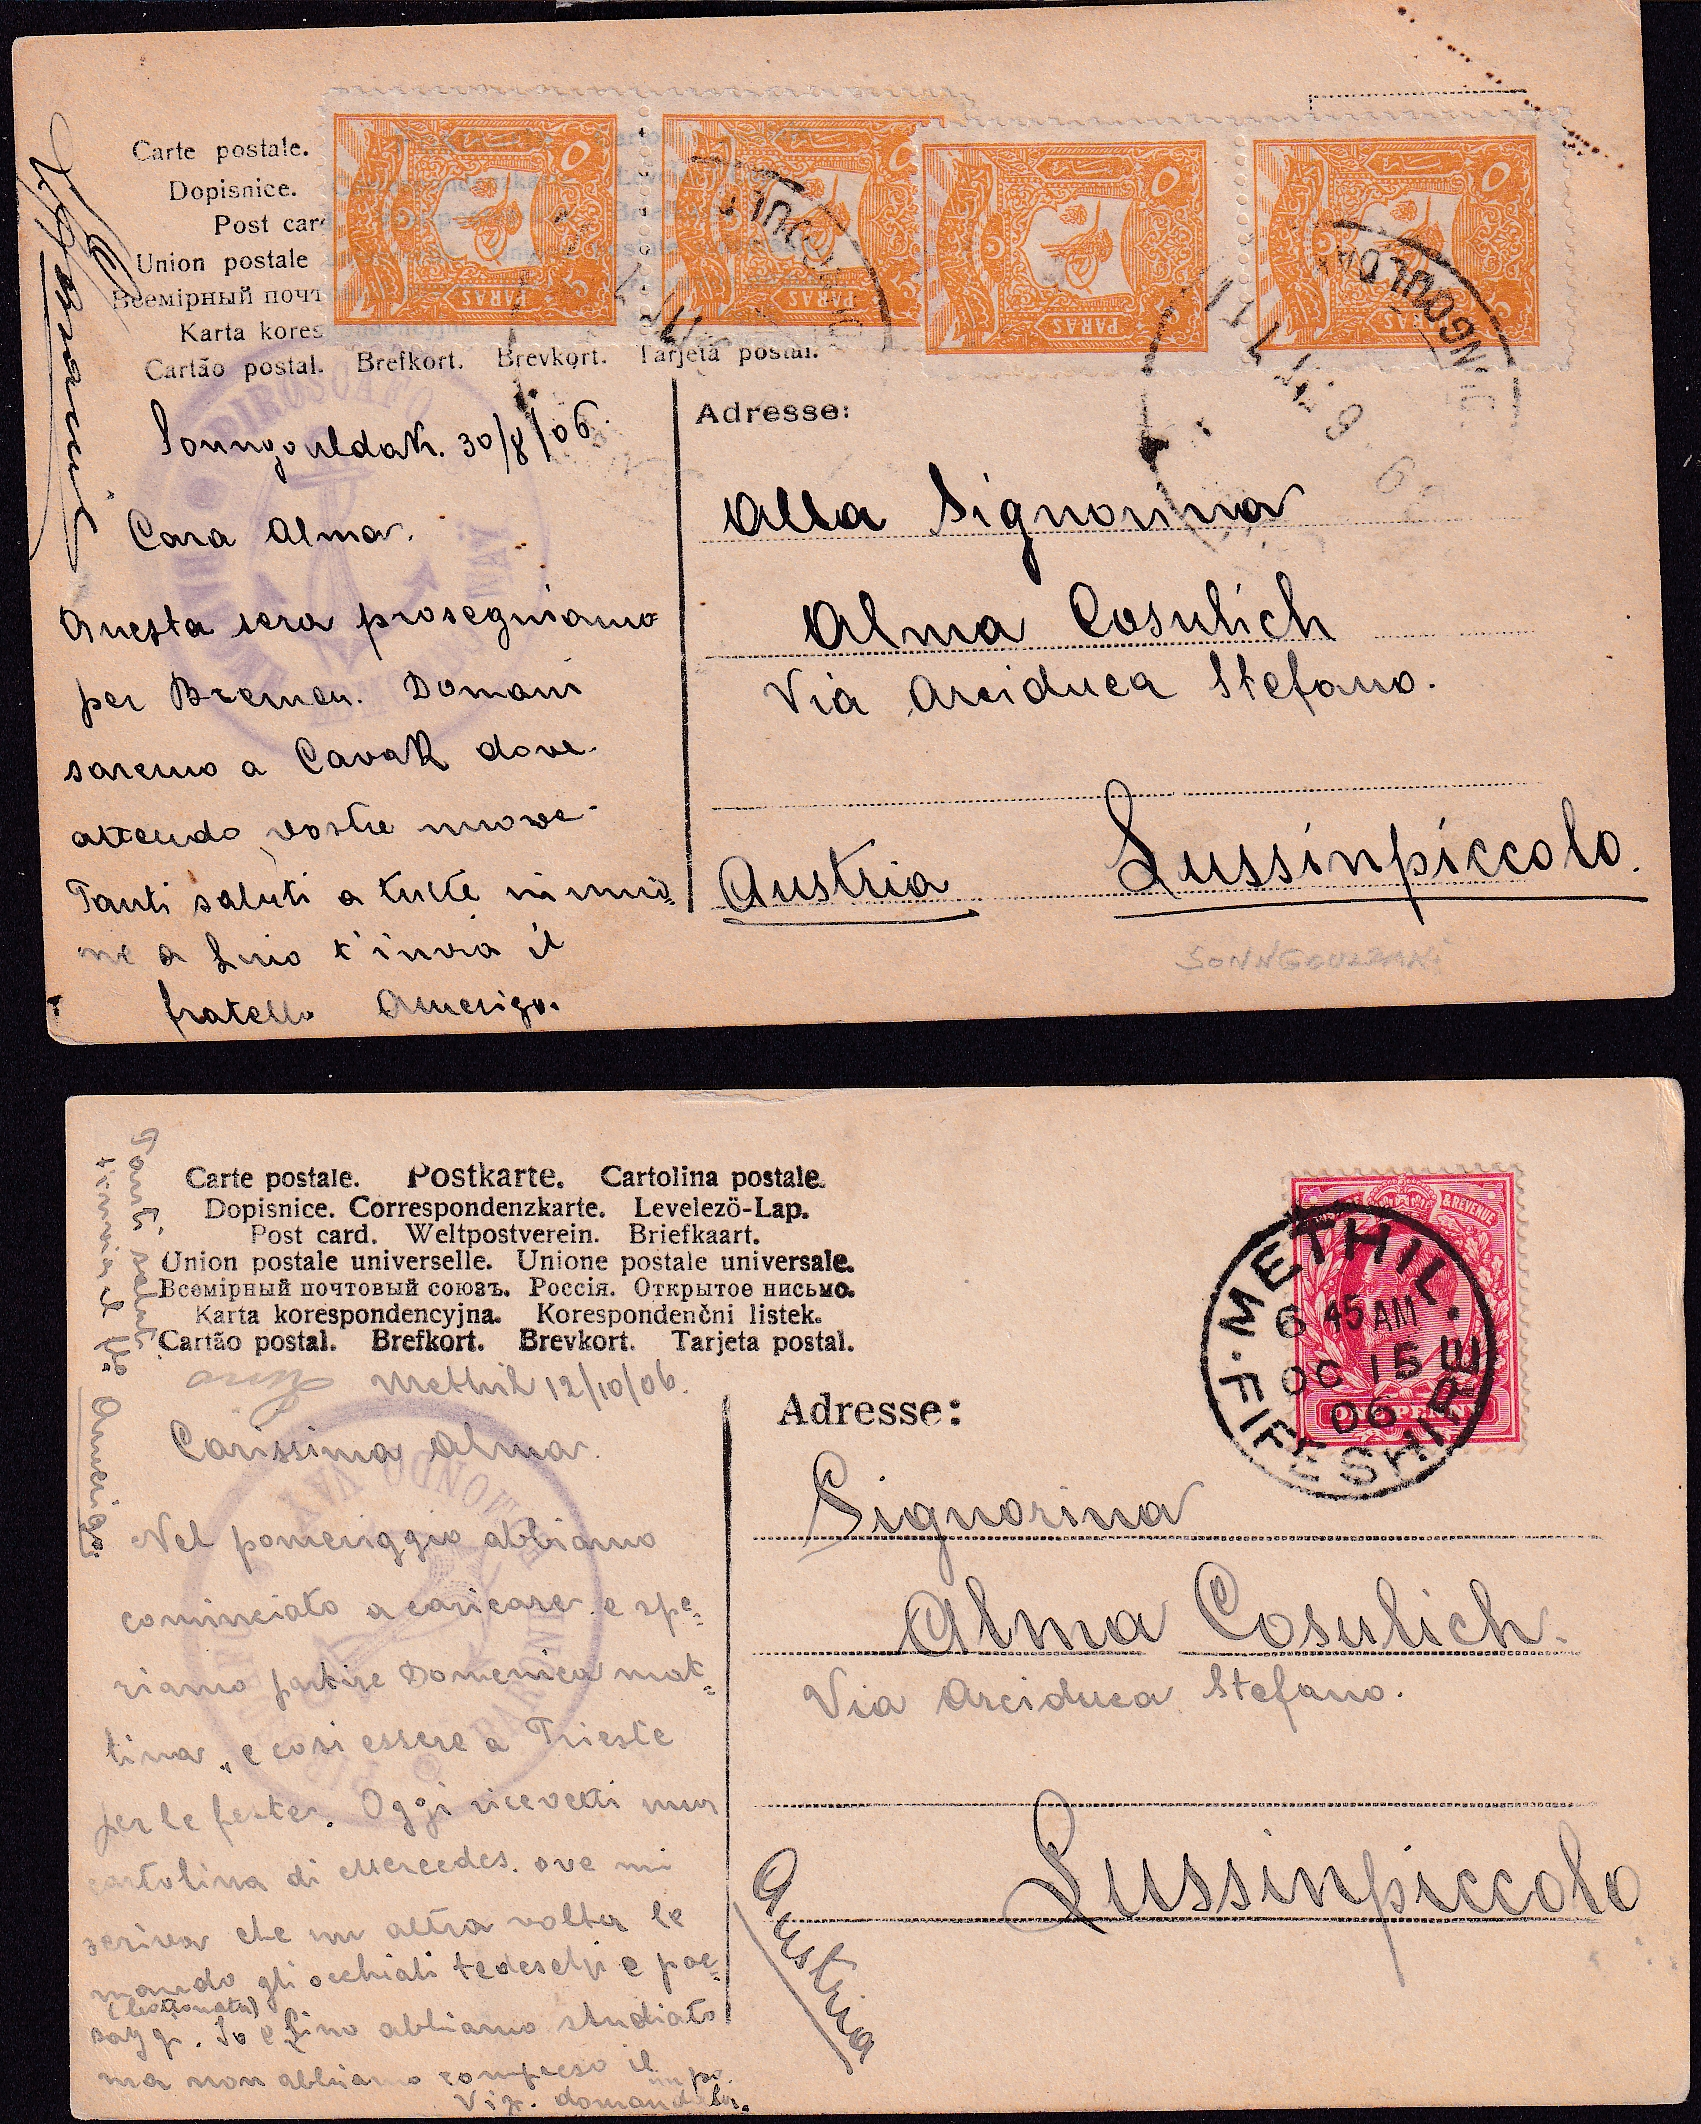 Carte postale.
Dopisnice.
Post car
Union postale
Всемірный почт
Karta kores
Cartão postal. Brefkort. Brevkort. Tarjeta postal.
PARAS
PARAS
PARAS
PARAS
ZONGOULDAK
Sonngouldak. 30/8/06.
Cara Alma.
Questa sera proseguiamo
per Bremen. Domani
saremo a Cavak dove
attendo vostre nuove
Tanti saluti a tutte
a Lino t'invia il
fratello Amerigo.
PIROSCAFO
Adresse:
Alla Signorina
Alma Cosulich
Via Arciduca Stefano.
Austria Lussinpiccolo.
SONNGOULDAK
Carte postale. Postkarte. Cartolina postale.
Dopisnice. Correspondenzkarte. Levelezö-Lap.
Post card. Weltpostverein. Briefkaart.
Union postale universelle. Unione postale universale.
Всемірный почтовый союзъ. Россія. Открытое письмо.
Karta korespondencyjna. Korespondenčni listek.
Cartão postal. Brefkort. Brevkort. Tarjeta postal.
Tanti saluti
t'invia il fr. Amerigo.
Lino Methil 12/10/06.
Carissima Alma.
Nel pomeriggio abbiamo
cominciato a caricare e spe-
riamo partire Domenica mat-
tina, e così essere a Trieste
per le feste. Oggi ricevetti una
cartolina di Mercedes. ove mi
scriva che un altra volta le
mando gli occhiali tedeschi e pae-
saggi. Io e Lino abbiamo studiato
ma non abbiamo compreso il
BARONE EDMONDO VAY
Adresse:
& REVENUE
ONE PENNY
METHIL.
6 45 AM
OC 15
06
FIFESHIRE
Signorina
Alma Cosulich.
Via Arciduca Stefano.
Lussinpiccolo
Austria